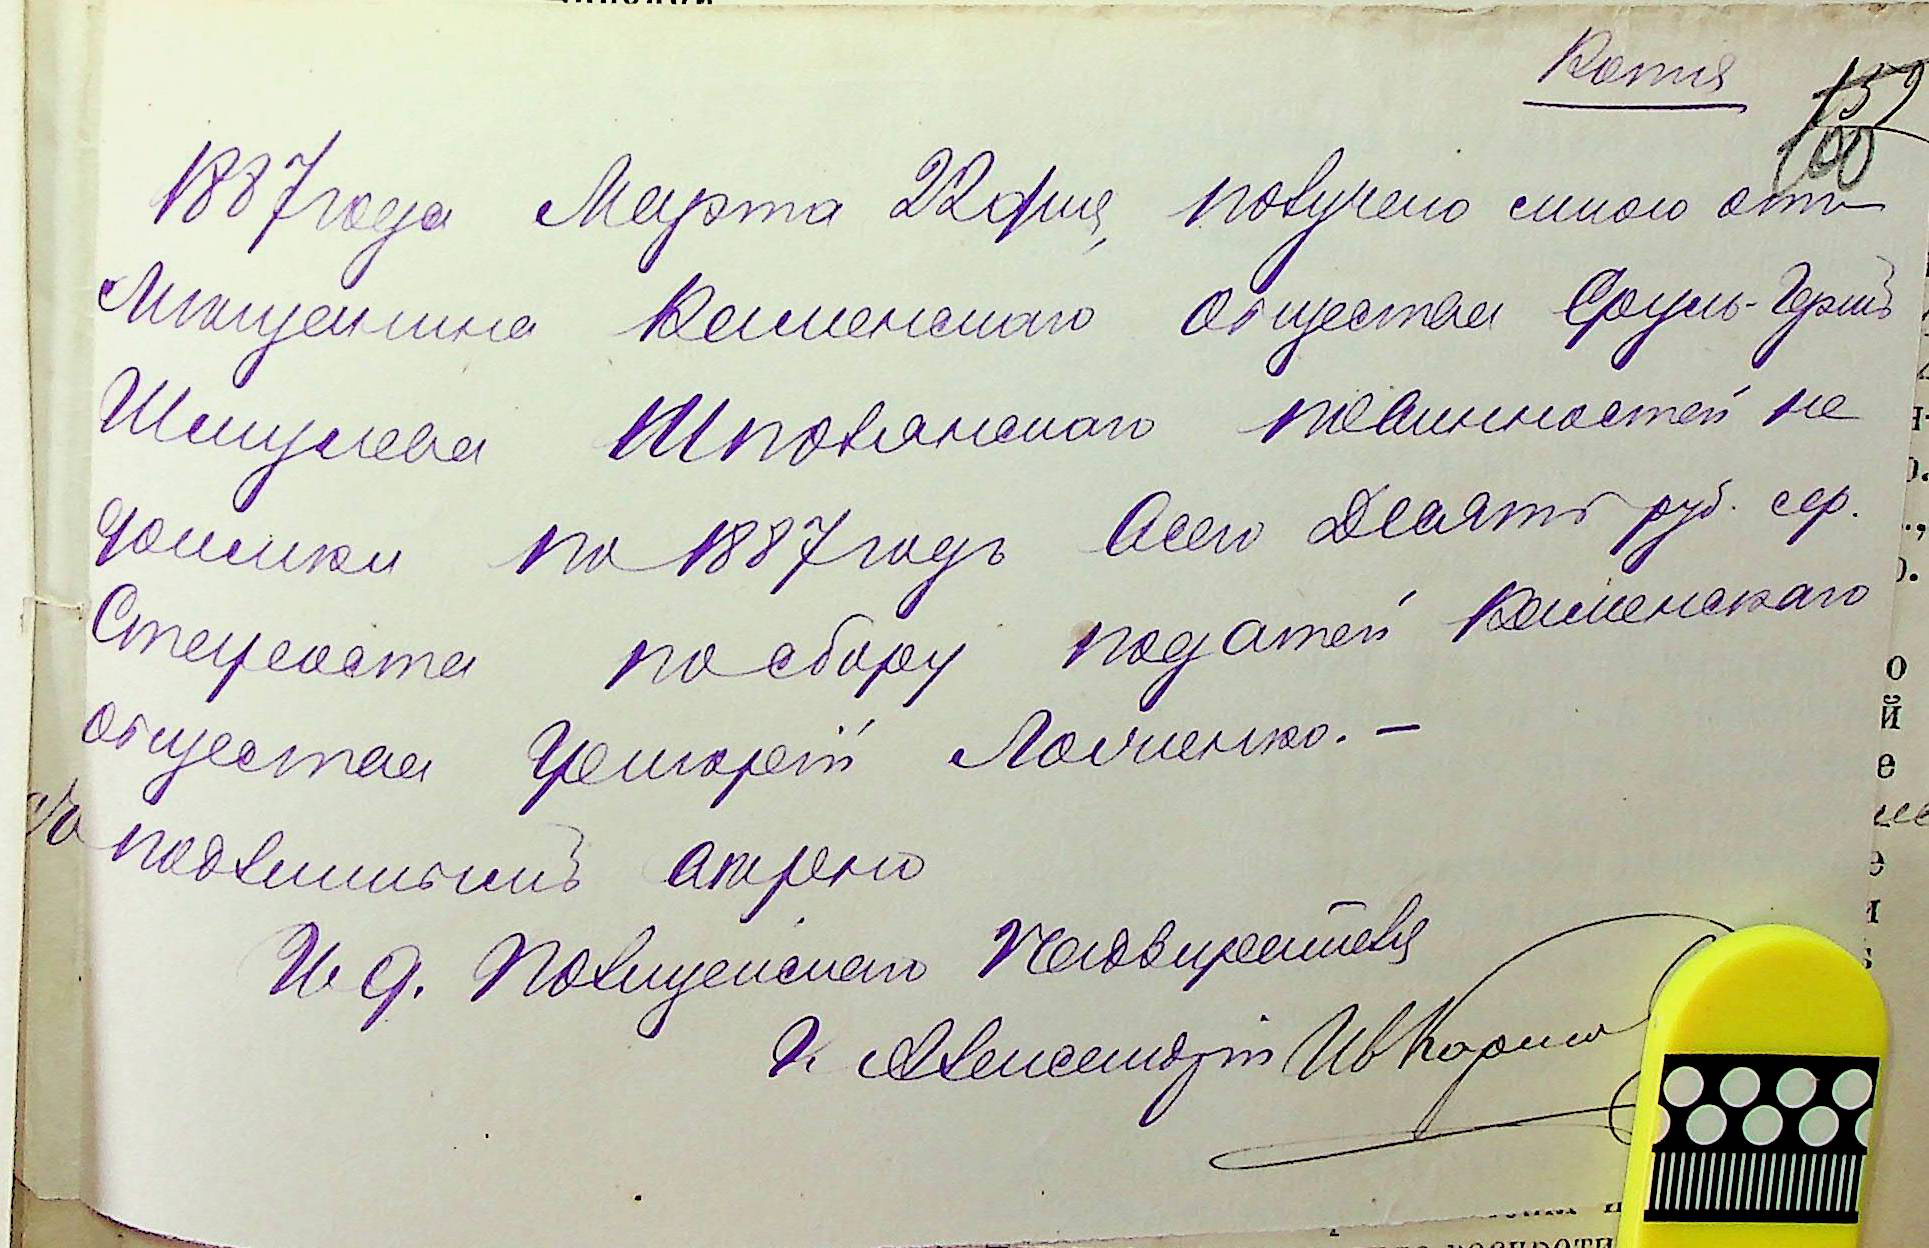 Копия
159
100
1887 года Марта 22 дня, получено мною отъ
Мищанина Каменскаго общества Сруль-Герш
Шмулева Шполянскаго повинностей не
доимки по 1887 годъ Всего Десять руб. сер.
Староста по сбору податей Каменскаго
общества Григорій
подлиннымъ вѣрно
И. д. Полицейскаго Надзирателя
Александр